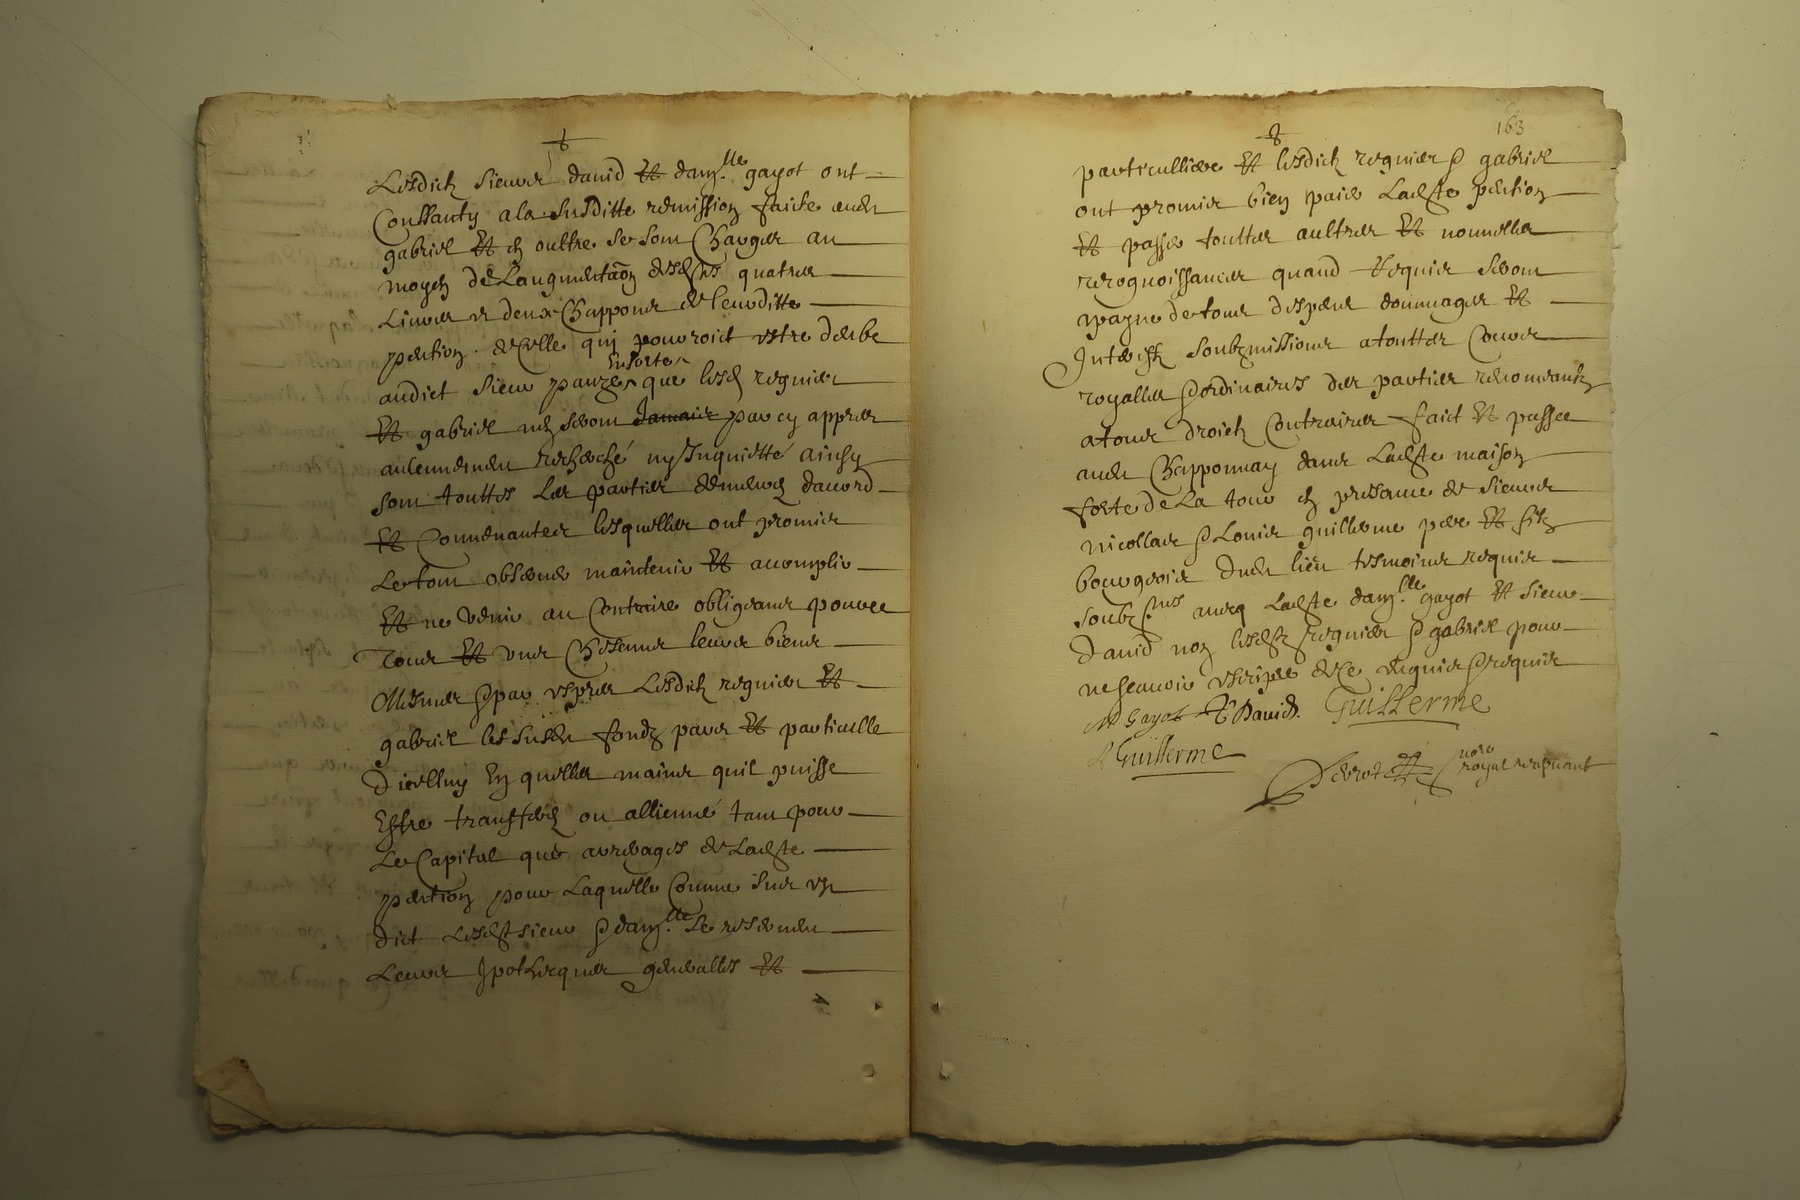 Lesdictz sieurs david Et dam.lle gayot ont
Consanty a la susditte remission faicte aud
gabriel Et en oultre se sont Charges au
moyen de Laugmentaon desd quatre
Livres et deux Chappons de lenditte
pention de celle qui pouvroict estre deube
audict sieur panze Ensorte que lesd regnier
Et gabriel nen seront Jamais par cy appres
aulcunement recherché ny Inquietté ainsy
sont touttes Les parties demeures daccord
Et Convenantes lesquelles ont promis
Le tout observer maintenir Et accomplir
Et ne venir au Contraire obligeants pour ce
Tous Et uns Chescuns leurs biens
Mesmes & par expres Lesdictz regnier Et
gabriel les susd fondz pures Et particulle
Dicelluy En quelles mains quil puisse
Estre transferez ou allienné tant pour
Le Capital que arreages de Ladte
pention pour Laquelle Comme sus est
dict Lesd sieur & dam.lle se reservent
Leurs Ipotheques generalles Et
163
particulliere Et lesdictz regnier & gabriel
ont promis bien paier Ladte pention
Et passer touttes aultres Et nouvelles
recognoissances quand Requis seront
a payne de tous despens dommages Et
Interestz soubzmissions a touttes Cours
royalles & ordinaires des parties renonceantz
a tous droictz Contraires faict Et passee
aud Chapponnay dans Ladte maison
forte de La tour en presance de sieurs
nicollas & Louis guillerme pere Et filz
bourgeois dud lieu tesmoins requis
soubz.nés avecq Ladte dam.lle gayot Et sieur
David non lesd regnier & gabriel pour
ne scavoir escripre de ce enquis & requis
M Gayot David. Guillerme
L Guillerme
nore
royal recepvant